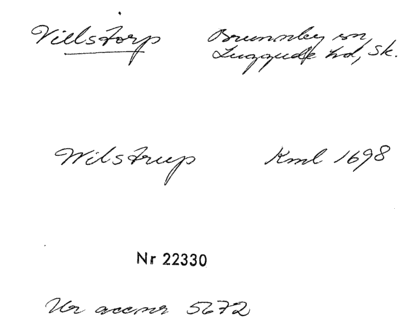 Villstorp Brunnby sn,
Luggude hd, Sk.
Wilstrup Kml 1698
Nr 22330
Ur accnr 5672